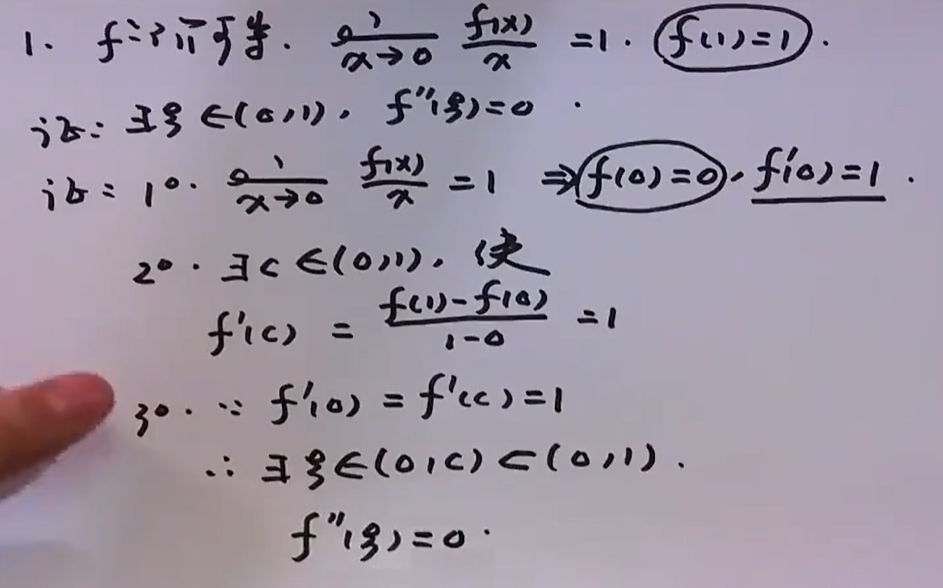 1. f二阶可导. lim x→0 f(x)/x =1. f(1)=1.
证: ∃ξ∈(0,1), f''(ξ)=0.
证: 1°. lim x→0 f(x)/x =1 ⇒ f(0)=0, f'(0)=1.
2°. ∃c∈(0,1), 使
f'(c) = (f(1)-f(0))/(1-0) =1
3°. ∵ f'(0)=f'(c)=1
∴ ∃ξ∈(0,c)⊂(0,1).
f''(ξ)=0.